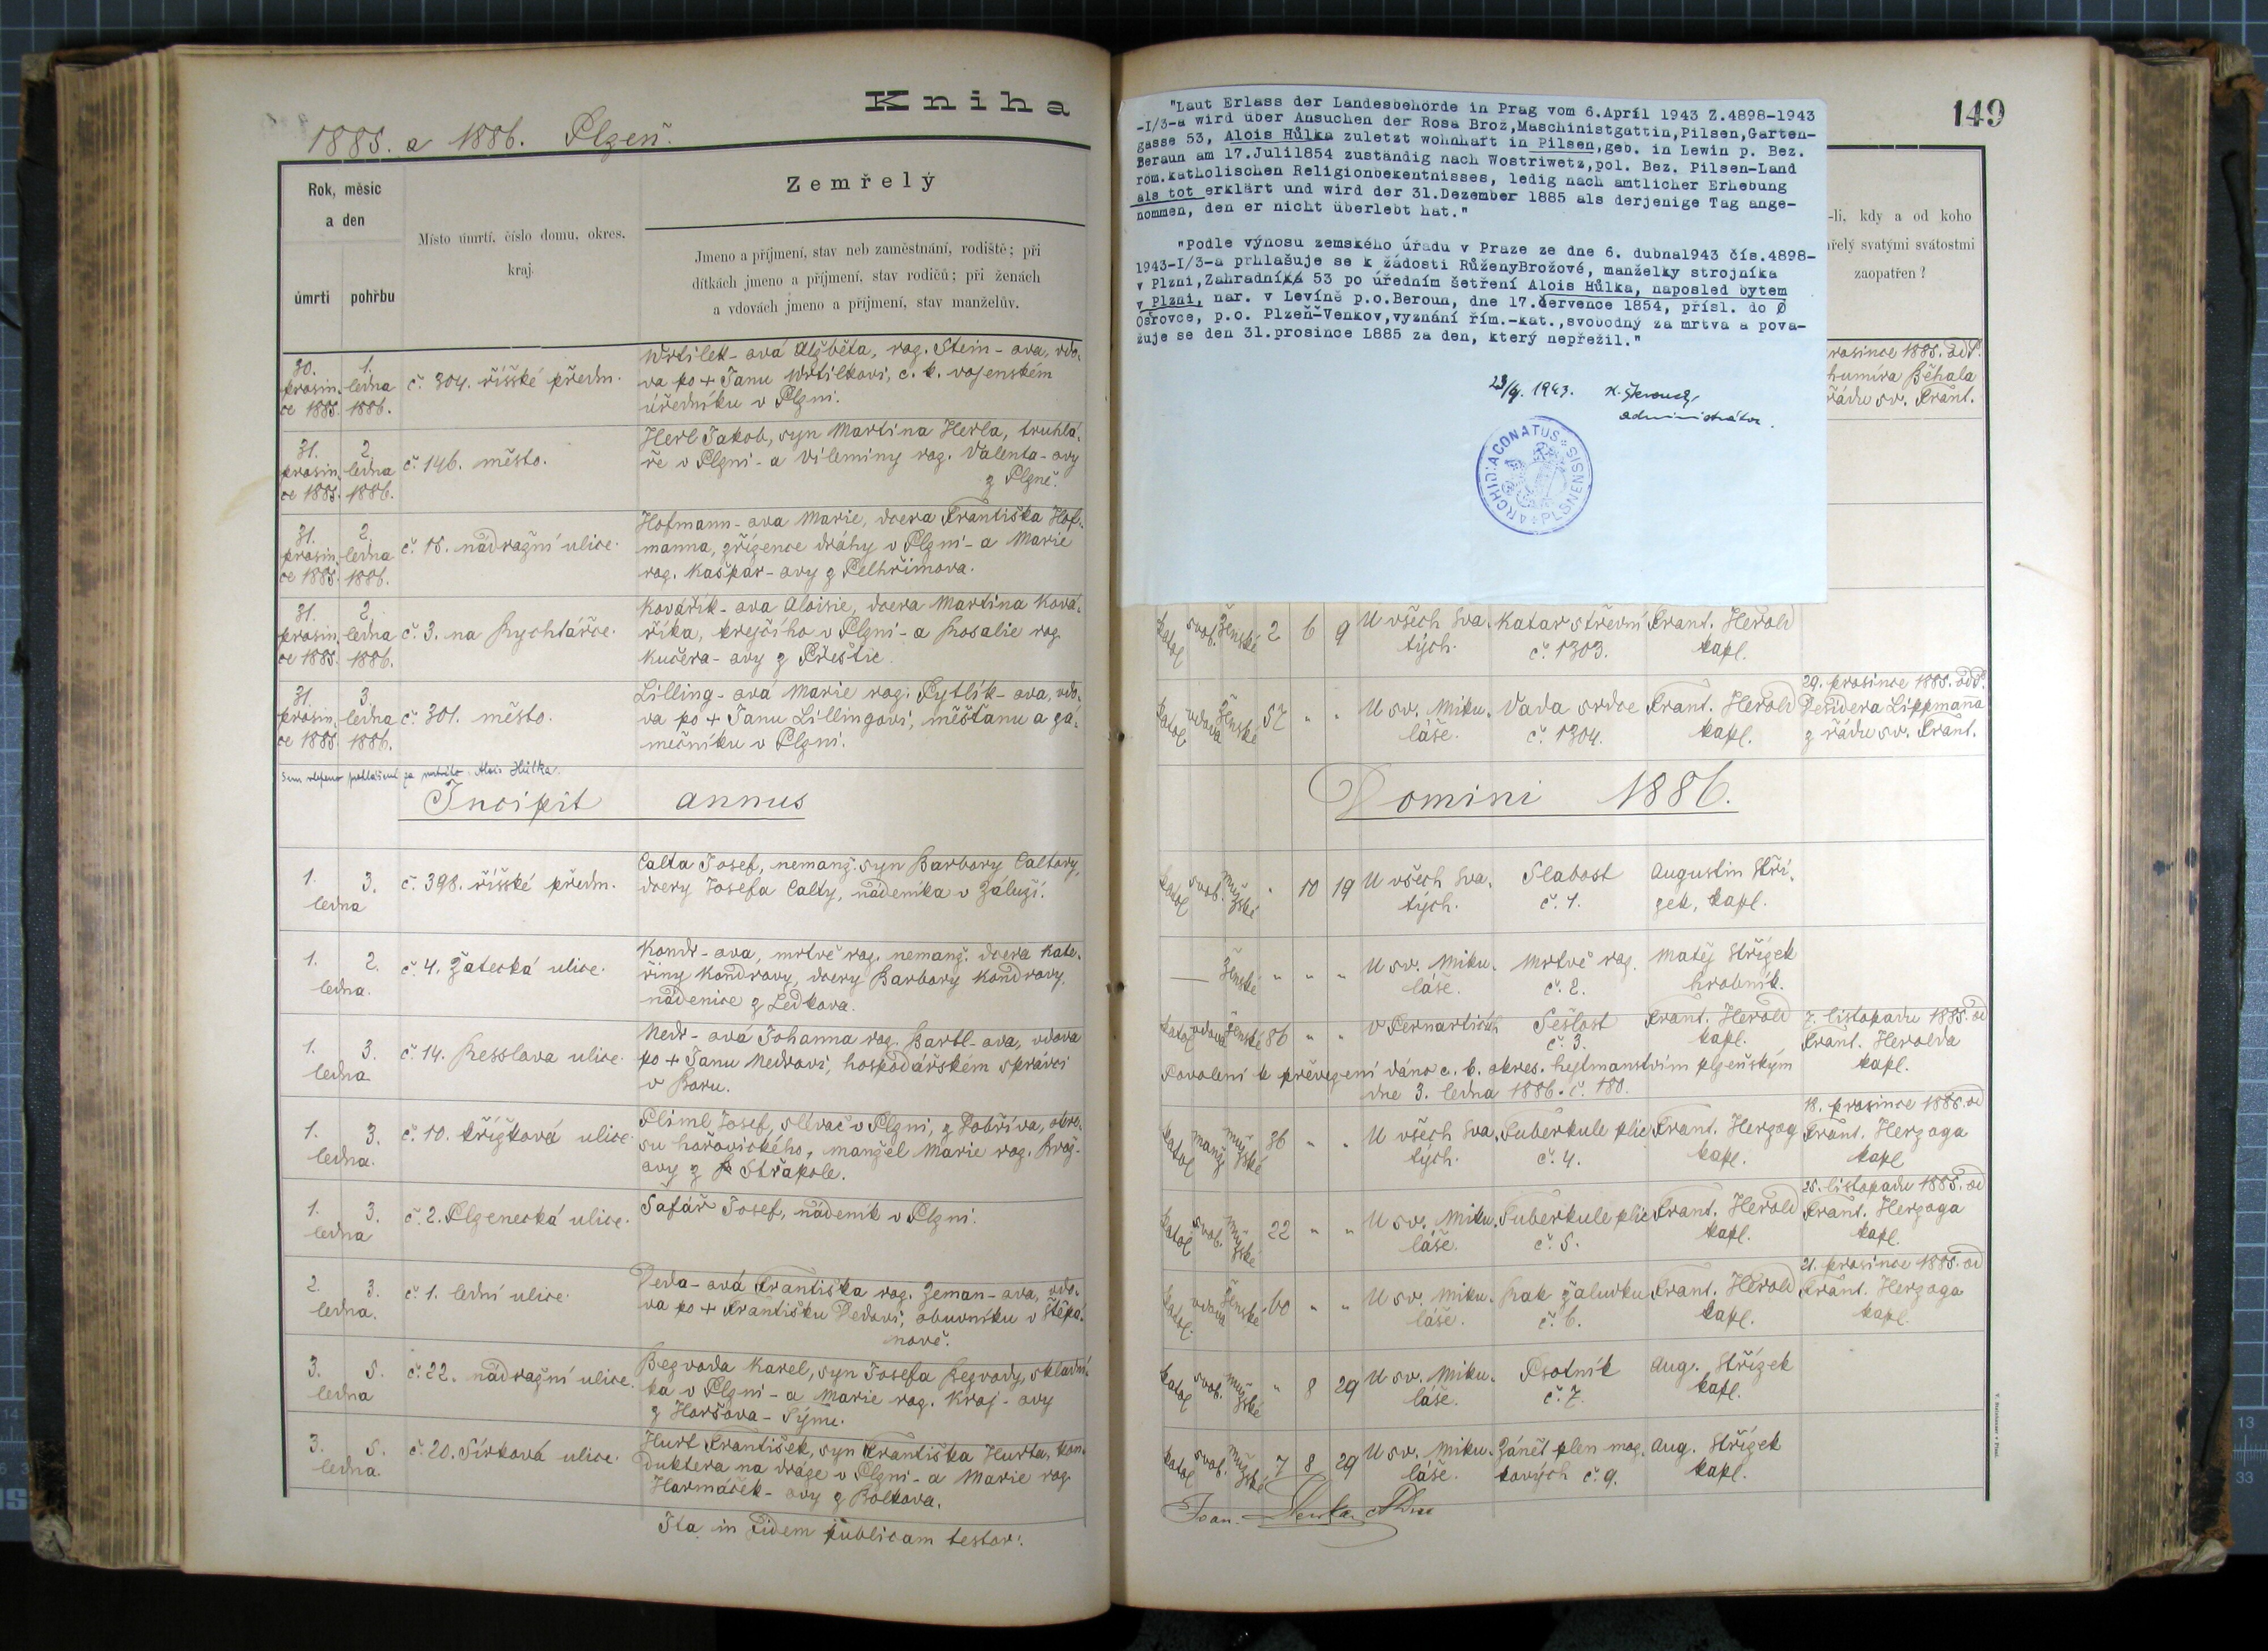 Kniha
1885. a 1886. Plzeň.
Rok, měsíc
a den
úmrtí
pohřbu
Místo úmrtí, číslo domu, okres.
kraj.
Zemřelý
Jmeno a příjmení, stav neb zaměstnání, rodiště; při
dítkách jmeno a příjmení, stav rodičů; při ženách
a vdovách jmeno a příjmení, stav manželův.
30. 1.
prosin. ledna
ce 1885. 1886.
č. 304. říšské předm.
Wrtilek-ová Alžběta, roz. Stein-ova, vdo-
va po + Janu Wrtilkovi, c. k. vojenském
úředníku v Plzni.
31. 2.
prosin. ledna
ce 1885. 1886.
č. 146. město.
Herl Jakob, syn Martina Herla, truhlá-
ře v Plzni - a Vileminy roz. Valenta-ovy
z Plzně.
31. 2.
prosin. ledna
ce 1885. 1886.
č. 15. nádražní ulice.
Hofmann-ova Marie, dcera Františka Hof-
manna, zřízence dráhy v Plzni - a Marie
roz. Kašpar-ovy z Pelhřimova.
31. 2.
prosin. ledna
ce 1885. 1886.
č. 3. na Rychtářce.
Kovářík-ova Aloisie, dcera Martina Ková-
říka, krejčího v Plzni - a Rosalie roz.
Kučera-ovy z Přeštic.
31. 3.
prosin. ledna
ce 1885. 1886.
č. 301. město.
Lilling-ová Marie roz. Pytlík-ova, vdo-
va po + Janu Lillingovi, měšťanu a zá-
mečníku v Plzni.
Sem vlepeno prohlášení za mrtvého: Alois Hůlka.
Incipit annus
1. 3.
ledna
č. 398. říšské předm.
Calta Josef, nemanž. syn Barbory Caltovy,
dcery Josefa Calty, nádeníka v Záluží.
1. 2.
ledna.
č. 4. Žatecká ulice.
Kondr-ova, mrtvě roz. nemanž. dcera Kate-
řiny Kondrovy, dcery Barbory Kondrovy,
nádenice z Ledkova.
1. 3.
ledna
č. 14. Resslova ulice.
Nedr-ová Johanna roz. Bartl-ova, vdova
po + Janu Nedrovi, hospodářském správci
v Boru.
1. 3.
ledna.
č. 10. křížková ulice.
Pliml Josef, slévač v Plzni, z Dobříva, okre-
su hořovického, manžel Marie roz. Brož-
ovy z Střapole.
1. 3.
ledna
č. 2. Plzenecká ulice.
Šafář Josef, nádeník v Plzni.
2. 3.
ledna.
č. 1. lední ulice.
Deda-ová Františka roz. Zeman-ova, vdo-
va po + Františku Dedovi, obuvníku v Štěpá-
nově.
3. 5.
ledna
č. 22. nádražní ulice.
Bezvoda Karel, syn Josefa Bezvody, skladní-
ka v Plzni - a Marie roz. Kraj-ovy
z Horšova-Týna.
3. 5.
ledna.
č. 20. Jirková ulice.
Hurt František, syn Františka Hurta, kon-
duktera na dráze v Plzni - a Marie roz.
Harmáček-ovy z Bolkova.
Ita in fidem publicam testor:
149
"Laut Erlass der Landesbehörde in Prag vom 6.April 1943 Z.4898-1943
-I/3-a wird über Ansuchen der Rosa Brož,Maschinistgattin,Pilsen,Garten-
gasse 53, Alois Hůlka zuletzt wohnhaft in Pilsen,geb. in Lewin p. Bez.
Beraun am 17.Juli1854 zuständig nach Wostriwetz,pol. Bez. Pilsen-Land
röm.katholischen Religionbekentnisses, ledig nach amtlicher Erhebung
als tot erklärt und wird der 31.Dezember 1885 als derjenige Tag ange-
nommen, den er nicht überlebt hat."
"Podle výnosu zemského úřadu v Praze ze dne 6. dubna1943 čís.4898-
1943-I/3-a prhlašuje se k žádosti RůženyBrožové, manželky strojníka
v Plzni,Zahradní 53 po úředním šetření Alois Hůlka, naposled bytem
v Plzni, nar. v Levíně p.o.Beroun, dne 17.července 1854, přísl. do
Ostrovce, p.o. Plzeň-Venkov,vyznání řím.-kat.,svobodný za mrtva a pova-
žuje se den 31.prosince L885 za den, který nepřežil."
1943.
administrátor.
ARCHIDIACONATUS PLSNENSIS
-li, kdy a od koho
řelý svatými svátostmi
zaopatřen?
rosince 1885. od P.
humíra Běhala
řádu sv. Frant.
katol svob. ženské 2 6 9
U všech Sva-
tých.
Katar střevní
č. 1303.
Frant. Herold
kapl.
katol vdova ženské 57 " "
U sv. Miku-
láše.
Vada srdce
č. 1304.
Frant. Herold
kapl.
29. prosince 1885. od P.
Desidera Lippmanna
z řádu sv. Frant.
Domini 1886.
katol svob. mužské " 10 19
U všech Sva-
tých.
Slabost
č. 1.
Augustin Stří-
zek, kapl.
— ženské " " "
U sv. Miku-
láše.
Mrtvě roz.
č. 2.
Matěj Střízek
hrobník.
katol vdova ženské 86 " "
V Černarticích
Sešlost
č. 3.
Frant. Herold
kapl.
7. listopadu 1885. od
Frant. Herolda
kapl.
Povolení k převezení dáno c. k. okres. hejtmanstvím plzeňským
dne 3. ledna 1886. č. 180.
katol manž. mužské 36 " "
U všech Sva-
tých.
Tuberkule plic
č. 4.
Frant. Herzog
kapl.
18. prosince 1885. od
Frant. Herzoga
kapl
katol svob. mužské 22 " "
U sv. Miku-
láše.
Tuberkule plic
č. 5.
Frant. Herold
kapl.
25. listopadu 1885. od
Frant. Herzoga
kapl.
katol. vdova ženské 60 " "
U sv. Miku-
láše.
Rak žaludku
č. 6.
Frant. Herold
kapl.
21. prosince 1885. od
Frant. Herzoga
kapl.
katol svob. mužské " 8 29
U sv. Miku-
láše.
Psotník
č. 7.
Aug. Střízek
kapl.
katol svob. mužské 7 8 29
U sv. Miku-
láše.
Zánět plen moz-
kových č. 9.
Aug. Střízek
kapl.
Joan.